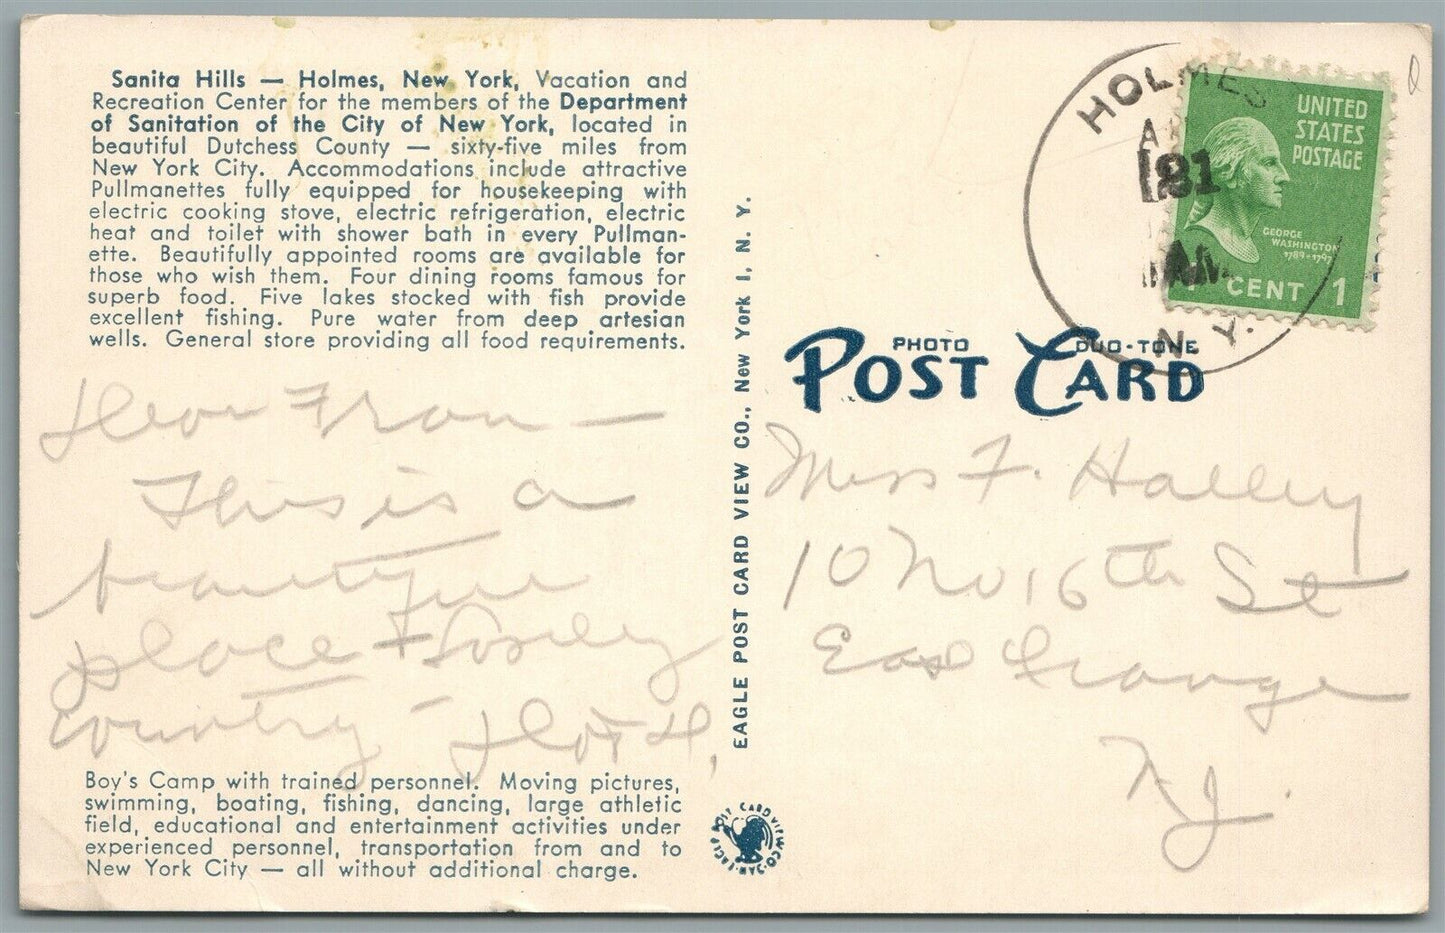 Sanita Hills — Holmes, New York, Vacation and
Recreation Center for the members of the Department
of Sanitation of the City of New York, located in
beautiful Dutchess County — sixty-five miles from
New York City. Accommodations include attractive
Pullmanettes fully equipped for housekeeping with
electric cooking stove, electric refrigeration, electric
heat and toilet with shower bath in every Pullman-
ette. Beautifully appointed rooms are available for
those who wish them. Four dining rooms famous for
superb food. Five lakes stocked with fish provide
excellent fishing. Pure water from deep artesian
wells. General store providing all food requirements.
Dear Fran —
This is a
beautiful
place +
country —
Boy's Camp with trained personnel. Moving pictures,
swimming, boating, fishing, dancing, large athletic
field, educational and entertainment activities under
experienced personnel, transportation from and to
New York City — all without additional charge.
EAGLE POST CARD VIEW CO., New York 1, N. Y.
HOLMES
N. Y.
UNITED
STATES
POSTAGE
GEORGE
WASHINGTON
1789-1797
1 CENT 1
PHOTO DUO-TONE
POST CARD
Miss F. Halley
10 No 16th St
East Orange
N.J.